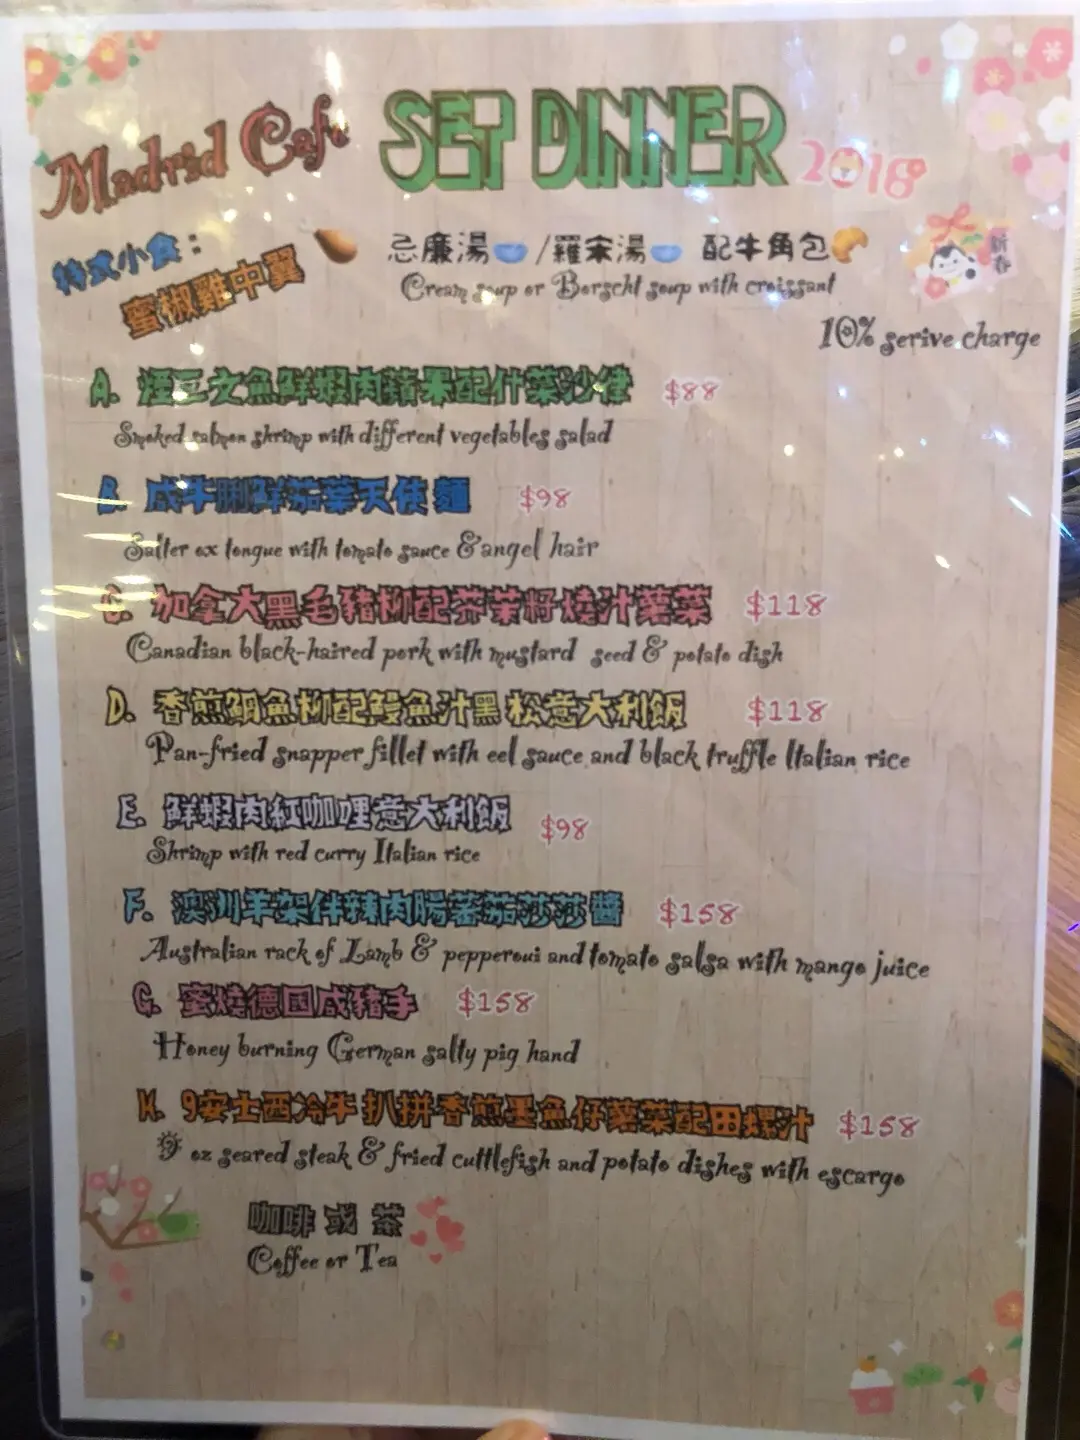 Madrid Cafe
SET DINNER
2018
特式小食：
蜜椒雞中翼
忌廉湯 /羅宋湯 配牛角包
Cream soup or Borscht soup with croissant
新春
10% serive charge
A. 煙三文魚鮮蝦肉蘋果配什菜沙律 $88
Smoked salmon shrimp with different vegetables salad
B. 咸牛脷鮮茄葉天使麵 $98
Salter ox tongue with tomato sauce & angel hair
C. 加拿大黑毛豬柳配芥茉籽燒汁薯菜 $118
Canadian black-haired pork with mustard seed & potato dish
D. 香煎鯛魚柳配鰻魚汁黑松意大利飯 $118
Pan-fried snapper fillet with eel sauce and black truffle Italian rice
E. 鮮蝦肉紅咖哩意大利飯 $98
Shrimp with red curry Italian rice
F. 澳洲羊架伴辣肉腸蕃茄莎莎醬 $158
Australian rack of Lamb & pepperoui and tomato salsa with mango juice
G. 蜜燒德國咸豬手 $158
Honey burning German salty pig hand
H. 9安士西冷牛扒拼香煎墨魚仔薯菜配田螺汁 $158
9 oz seared steak & fried cuttlefish and potato dishes with escargo
咖啡 或 茶
Coffee or Tea